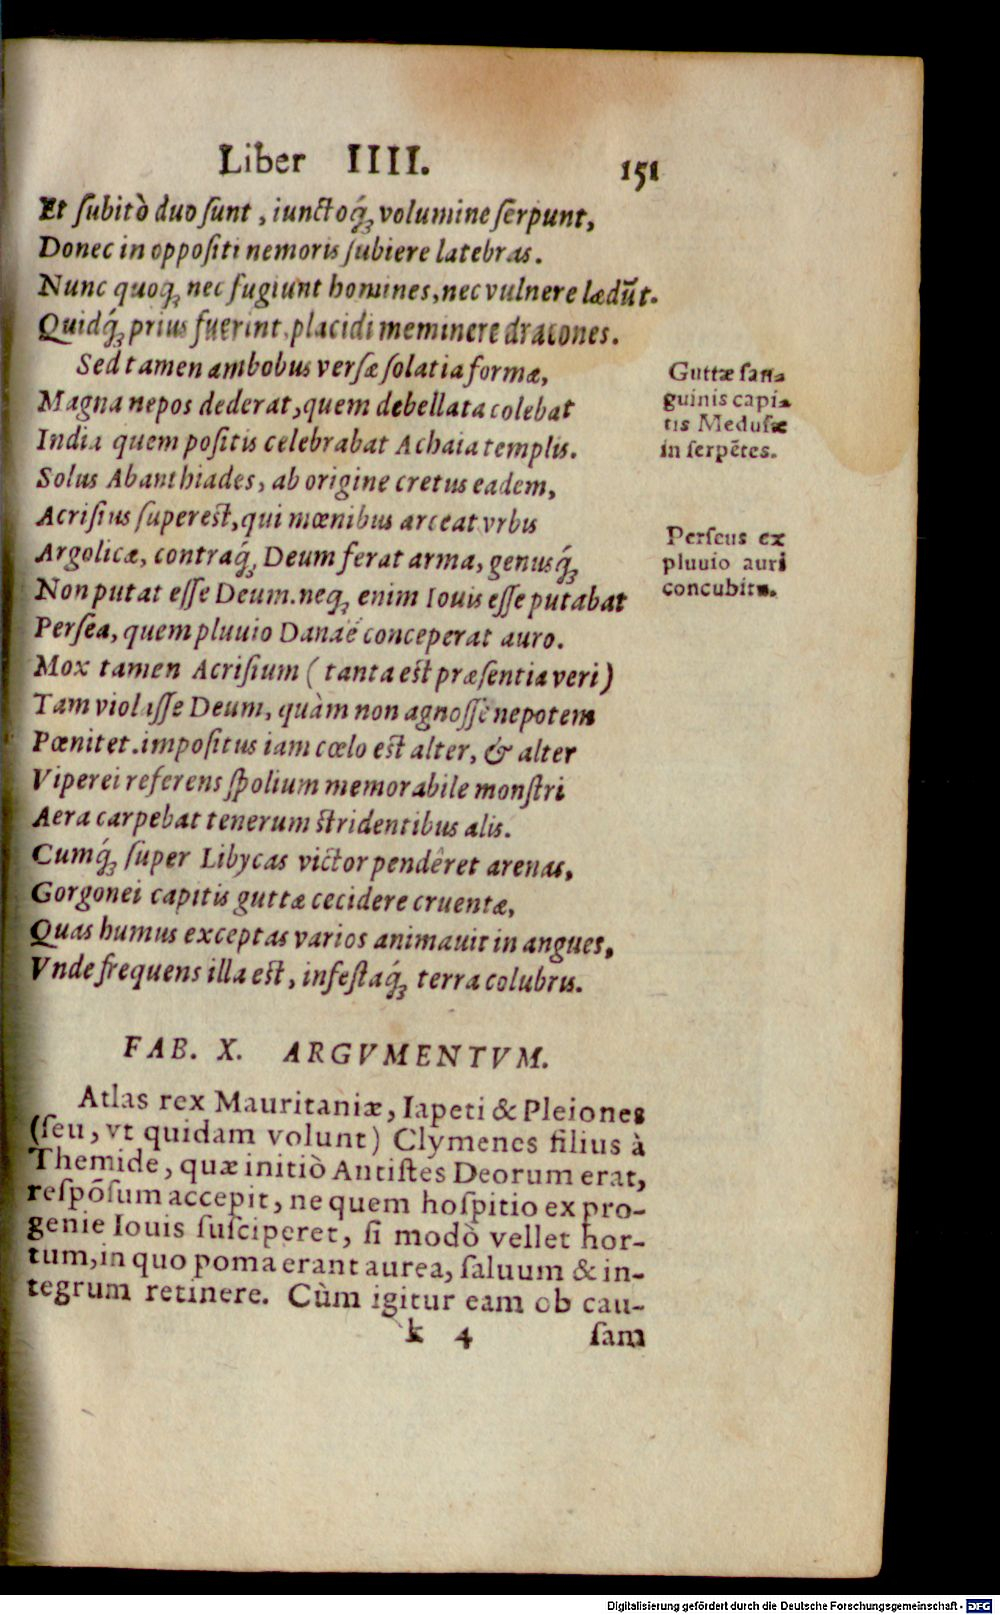 Liber IIII. 151
Et ſubitò duo ſunt, iunctoq́ꝫ volumine ſerpunt,
Donec in oppoſiti nemoris ſubiere latebras.
Nunc quoqꝫ nec fugiunt homines, nec vulnere lædũt.
Quidq́ꝫ prius fuerint, placidi meminere dracones.
Sed tamen ambobus verſæ ſolatia formæ,
Magna nepos dederat, quem debellata colebat
India quem poſitis celebrabat Achaia templis.
Solus Abanthiades, ab origine cretus eadem,
Acriſius ſupereſt, qui mœnibus arceat vrbis
Argolicæ, contraq́ꝫ Deum ferat arma, genusq́ꝫ
Non putat eſſe Deum. neqꝫ enim Iouis eſſe putabat
Perſea, quem pluuio Danaë conceperat auro.
Mox tamen Acriſium (tanta eſt præſentia veri)
Tam violaſſe Deum, quàm non agnoſſe nepotem
Pœnitet. impoſitus iam cœlo eſt alter, & alter
Viperei referens ſpolium memorabile monſtri
Aera carpebat tenerum ſtridentibus alis.
Cumq́ꝫ ſuper Libycas victor pendêret arenas,
Gorgonei capitis guttæ cecidere cruentæ,
Quas humus exceptas varios animauit in angues,
Vnde frequens illa eſt, infeſtaq́ꝫ terra colubris.
Guttæ ſan-
guinis capi-
tis Meduſæ
in ſerpẽtes.
Perſeus ex
pluuio auri
concubitu.
FAB. X. ARGVMENTVM.
Atlas rex Mauritaniæ, Iapeti & Pleiones
(ſeu, vt quidam volunt) Clymenes filius à
Themide, quæ initiò Antiſtes Deorum erat,
reſpõſum accepit, ne quem hoſpitio ex pro-
genie Iouis ſuſciperet, ſi modò vellet hor-
tum, in quo poma erant aurea, ſaluum & in-
tegrum retinere. Cùm igitur eam ob cau-
k 4 ſam
Digitalisierung gefördert durch die Deutsche Forschungsgemeinschaft - DFG